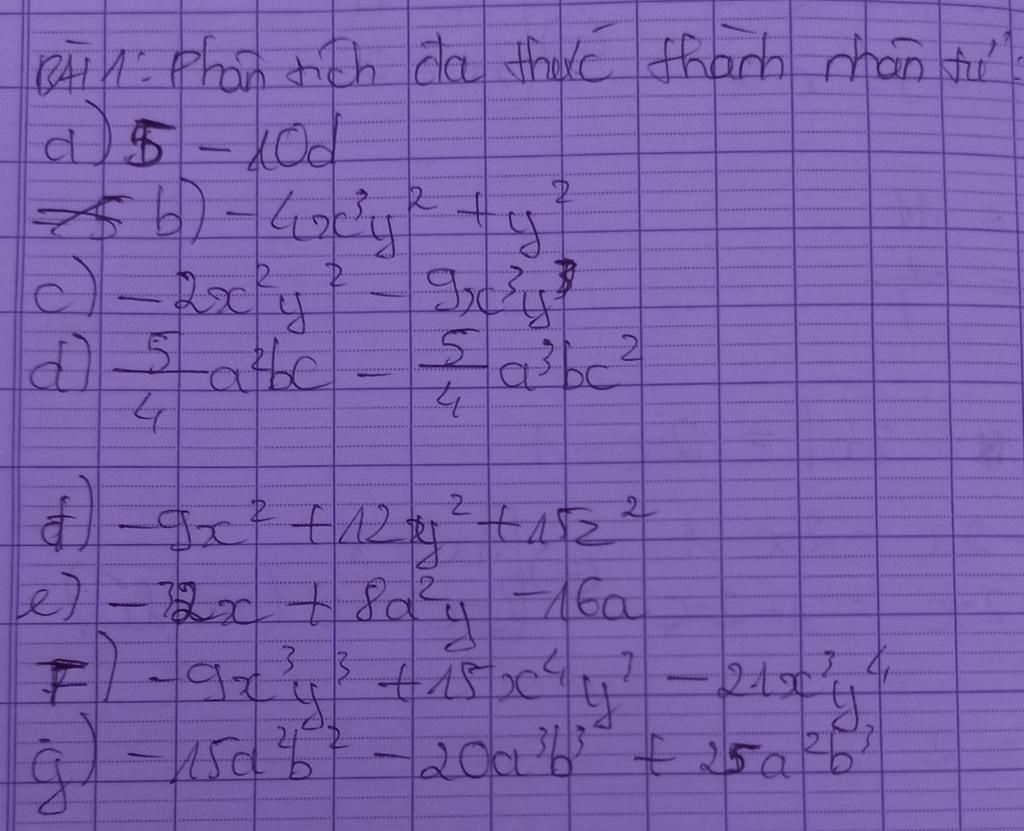 BÀI 1: Phân tích đa thức thành nhân tử:
a) 5 - 10a
b) - 4x³y² + y²
c) - 2x²y² - 9x³y³
d) 5/4 a²bc - 5/4 a³bc²
đ) - 9x² + 12y² + 15z²
e) - 32x + 8a²y - 16a
F) - 9x³y³ + 15x⁴y³ - 21x³y⁴
g) - 15a²b² - 20a³b³ + 25a²b³